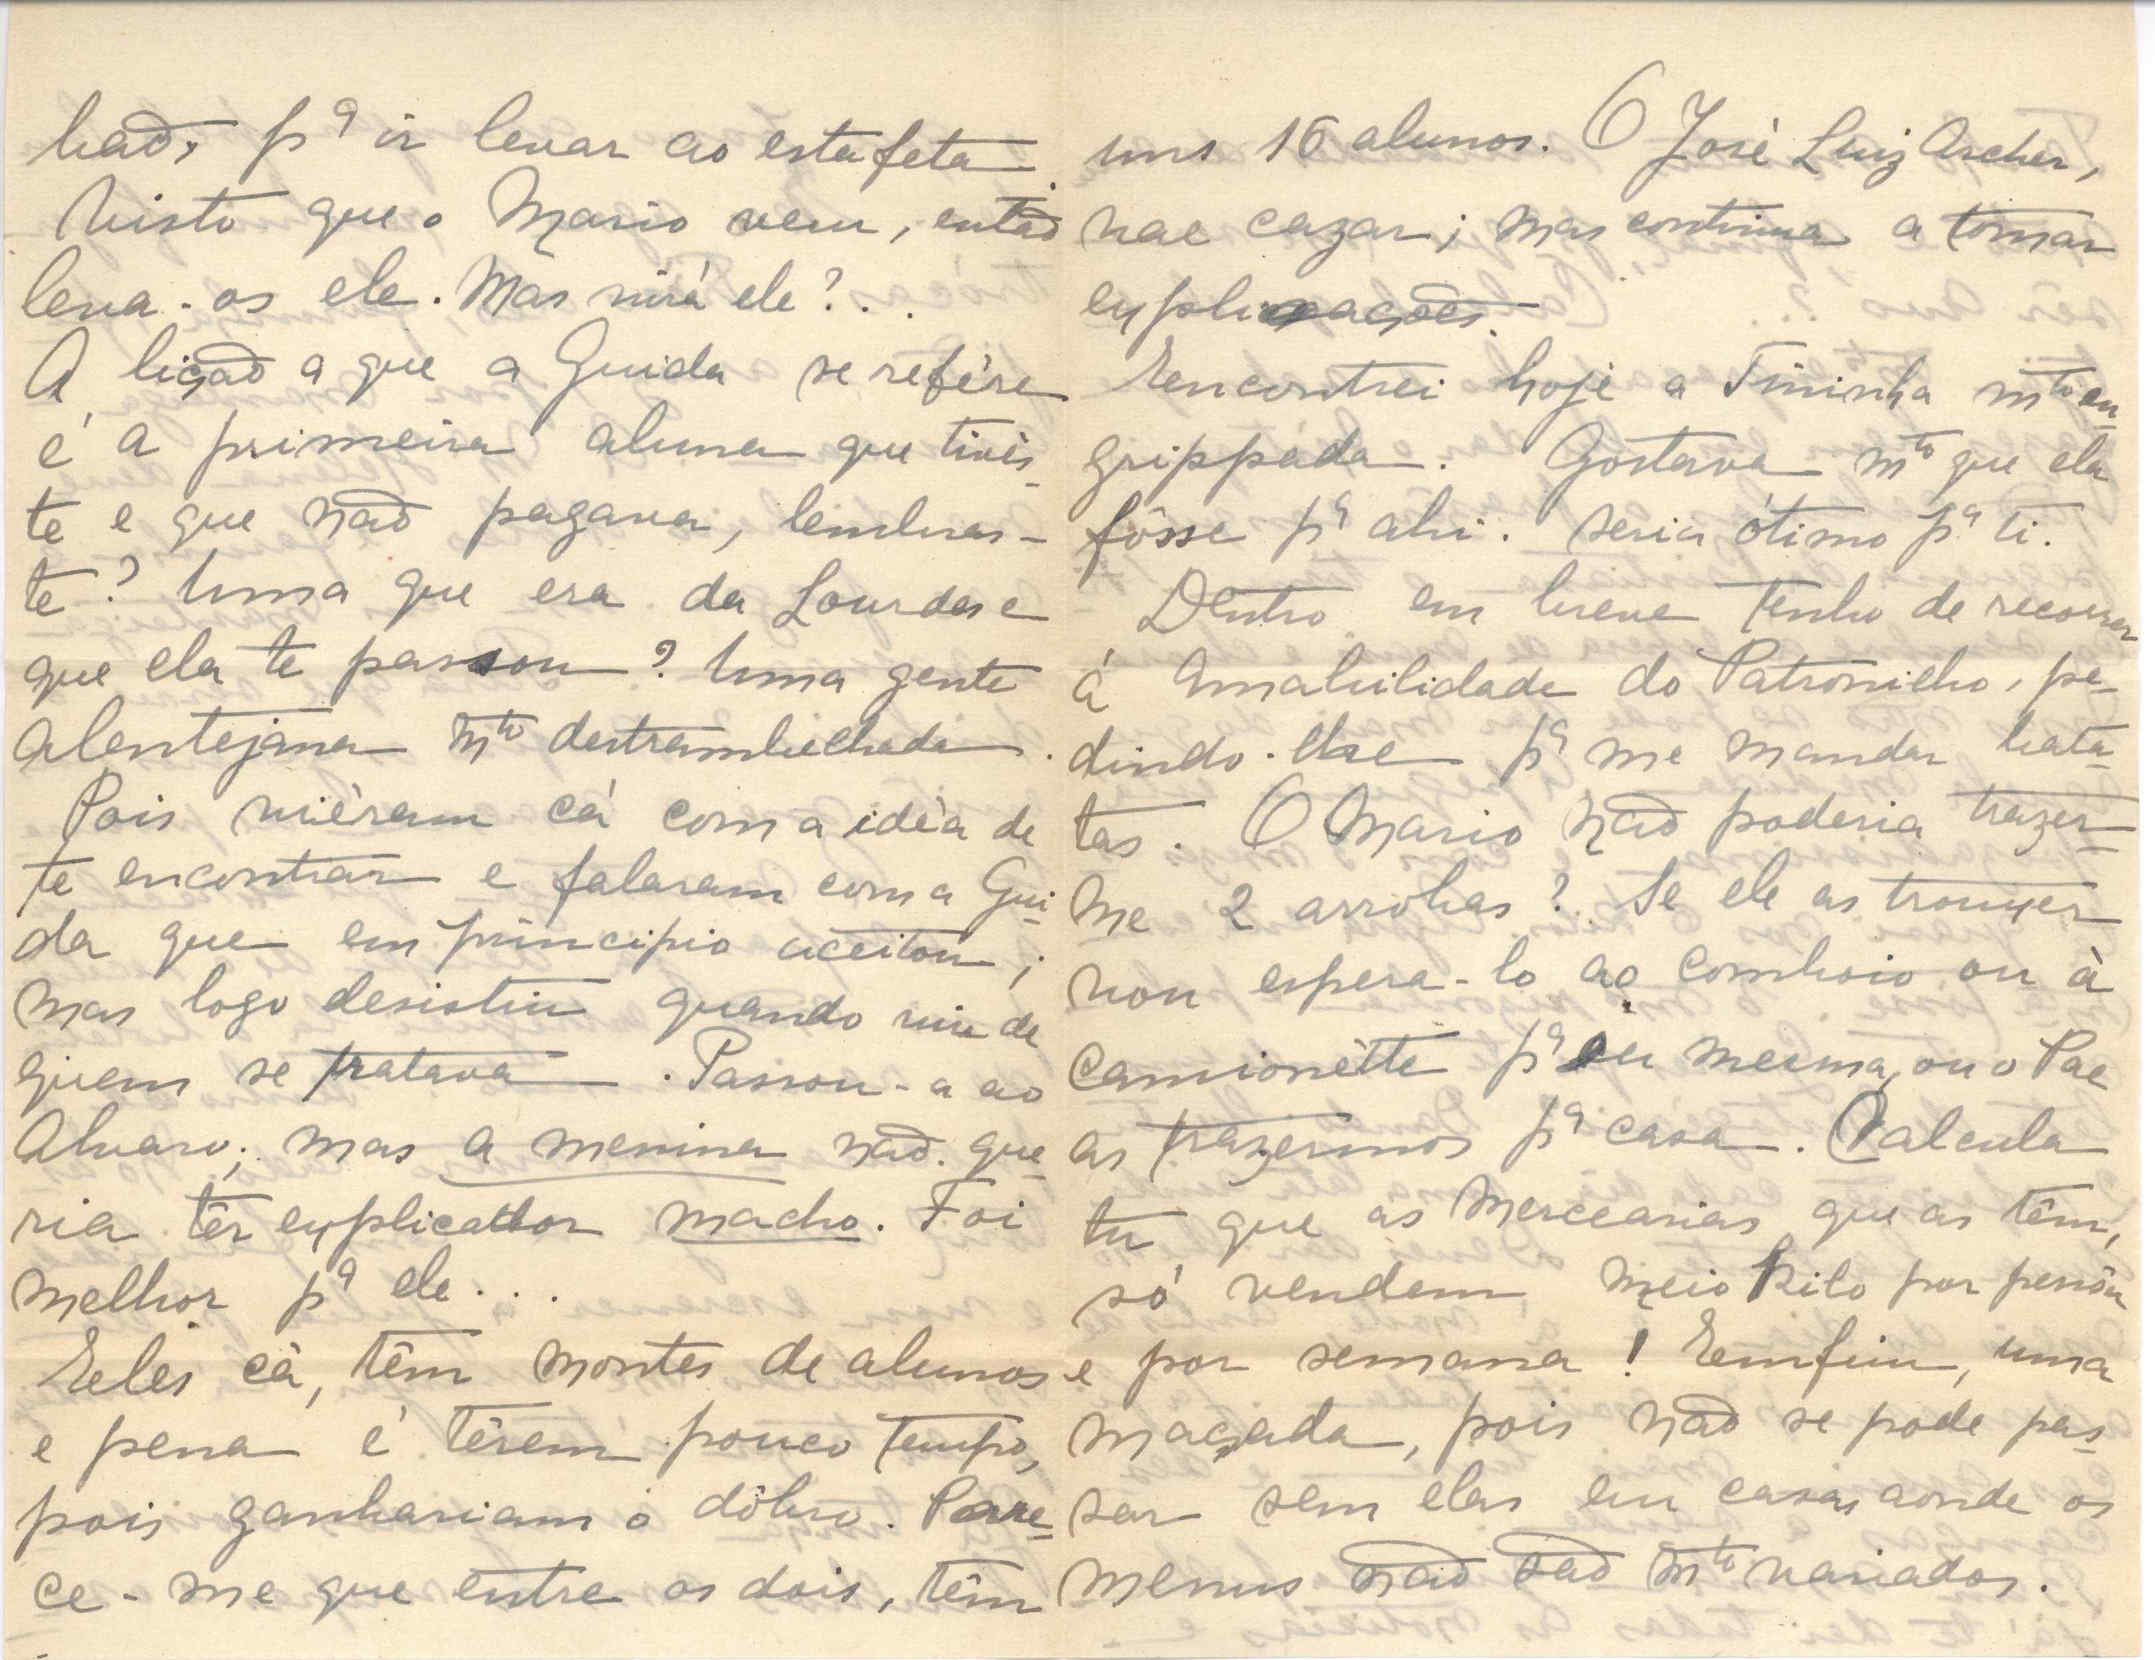 hão, pª ir levar ao estafeta.
Visto que o Mario vem, então
leva-os ele. Mas virá ele?...
A lição a que a Guida se refére
é a primeira aluna que tivés-
te e que não pagava, lembras-
te? Uma que era da Lourdes e
que ela te passou? Uma gente
alentejana mto destrambelhada.
Pois viéram cá com a idéa de
te encontrar e falaram com a Gui-
da que em principio aceitou;
mas logo desistiu quando viu de
quem se tratava. Passou-a ao
Alvaro; mas a menina não que-
ria têr explicador macho. Foi
melhor pª ele...
Eeles cá, têm montes de alunos
e pena é têrem pouco tempo,
pois ganhariam o dôbro. Pare-
ce-me que entre os dois, têm
uns 16 alunos. O José Luiz Archer,
vae cazar; mas continua a tomar
explicações.
Eencontrei hoje a Fininha mto en-
grippada. Gostava mto que ela
fôsse pª ahi. Seria ótimo pª ti.
Dentro em breve tenho de recorrer
á amabilidade do Patronilho, pe-
dindo-lhe pª me mandar bata-
tas. O Mario não poderia trazer-
me 2 arrobas? Se ele as trouxer
vou espera-lo ao comboio ou à
camionétte pª eu mesma, ou o Pae
as trazermos pª casa. Calcula
tu que as mercearias que as têm,
só vendem meio kilo por pessôa
e por semana! Eemfim, uma
maçada, pois não se pode pas-
sar sem elas em casas aonde os
menus não são mto variados.